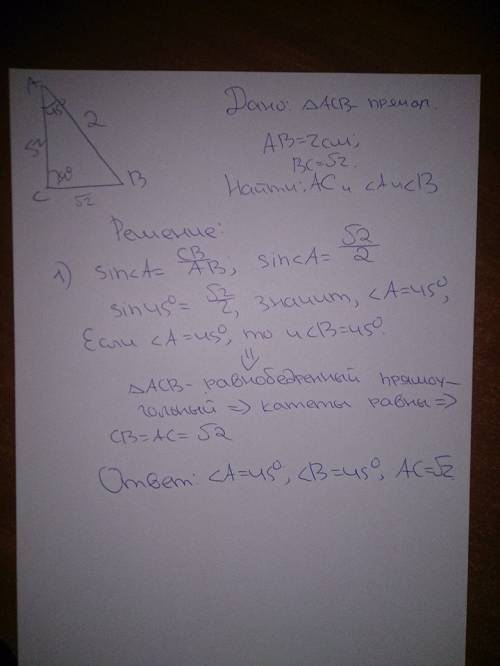 A
45°
2
√2
90°
C
√2
B
Дано: △ACB - прямоуг.
AB=2см;
BC=√2.
Найти: AC и ∠A и ∠B
Решение:
1) sin∠A= CB/AB; sin∠A= √2/2
sin45°= √2/2, значит, ∠A=45°,
Если ∠A=45°, то и ∠B=45°.
⇓
△ACB - равнобедренный прямоу-
гольный => катеты равны =>
CB=AC= √2
Ответ: ∠A=45°, ∠B=45°, AC=√2